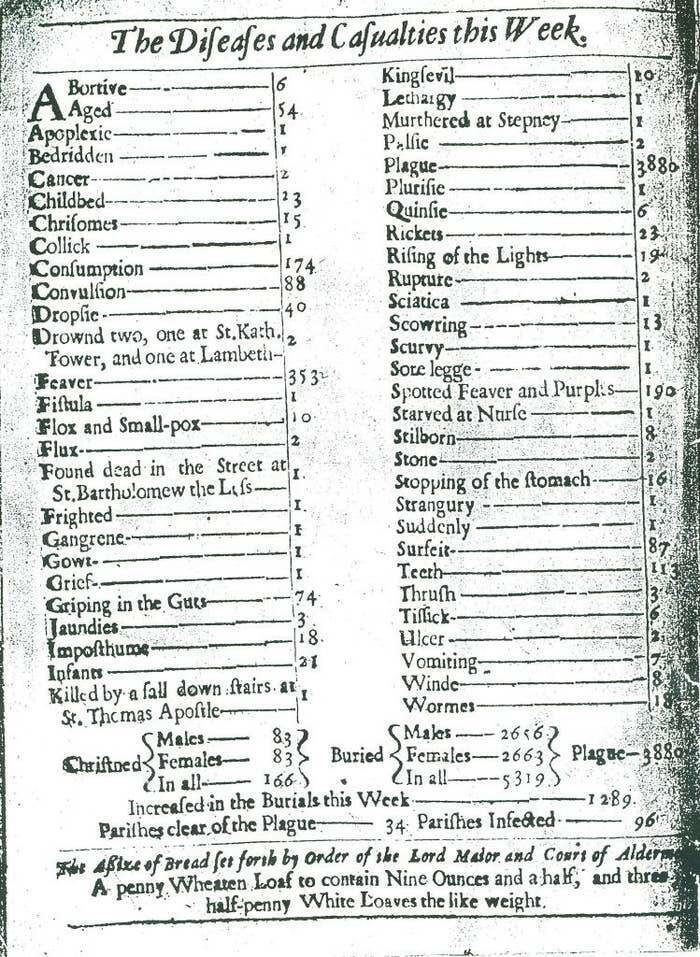 The Diſeaſes and Caſualties this Week.
ABortive 6
Aged 54
Apoplexie 1
Bedridden 1
Cancer 2
Childbed 23
Chriſomes 15
Collick 1
Conſumption 174
Convulſion 88
Dropſie 40
Drownd two, one at St.Kath. 2
Tower, and one at Lambeth
Feaver 353
Fiſtula 1
Flox and Small-pox 10
Flux 2
Found dead in the Street at 1
St.Bartholomew the Leſs
Frighted 1
Gangrene 1
Gowt 1
Grief 1
Griping in the Guts 74
Jaundies 3
Impoſthume 18
Infants 21
Killed by a fall down ſtairs at 1
St. Thomas Apoſtle
Kingſevil 10
Lethargy 1
Murthered at Stepney 1
Palſie 2
Plague 3880
Pluriſie 1
Quinſie 6
Rickets 23
Riſing of the Lights 19
Rupture 2
Sciatica 1
Scowring 13
Scurvy 1
Sore legge 1
Spotted Feaver and Purples 190
Starved at Nurſe 1
Stilborn 8
Stone 2
Stopping of the ſtomach 16
Strangury 1
Suddenly 1
Surfeit 87
Teeth 113
Thruſh 3
Tiſſick 6
Ulcer 2
Vomiting 7
Winde 8
Wormes 18
Chriſtned Males 83 Females 83 In all 166
Buried Males 2656 Females 2663 In all 5319
Plague 3880
Increaſed in the Burials this Week 1289.
Pariſhes clear of the Plague 34 Pariſhes Infected 96
The Aſſize of Bread ſet forth by Order of the Lord Maior and Court of
A penny Wheaten Loaf to contain Nine Ounces and a half, and three
half-penny White Loaves the like weight.